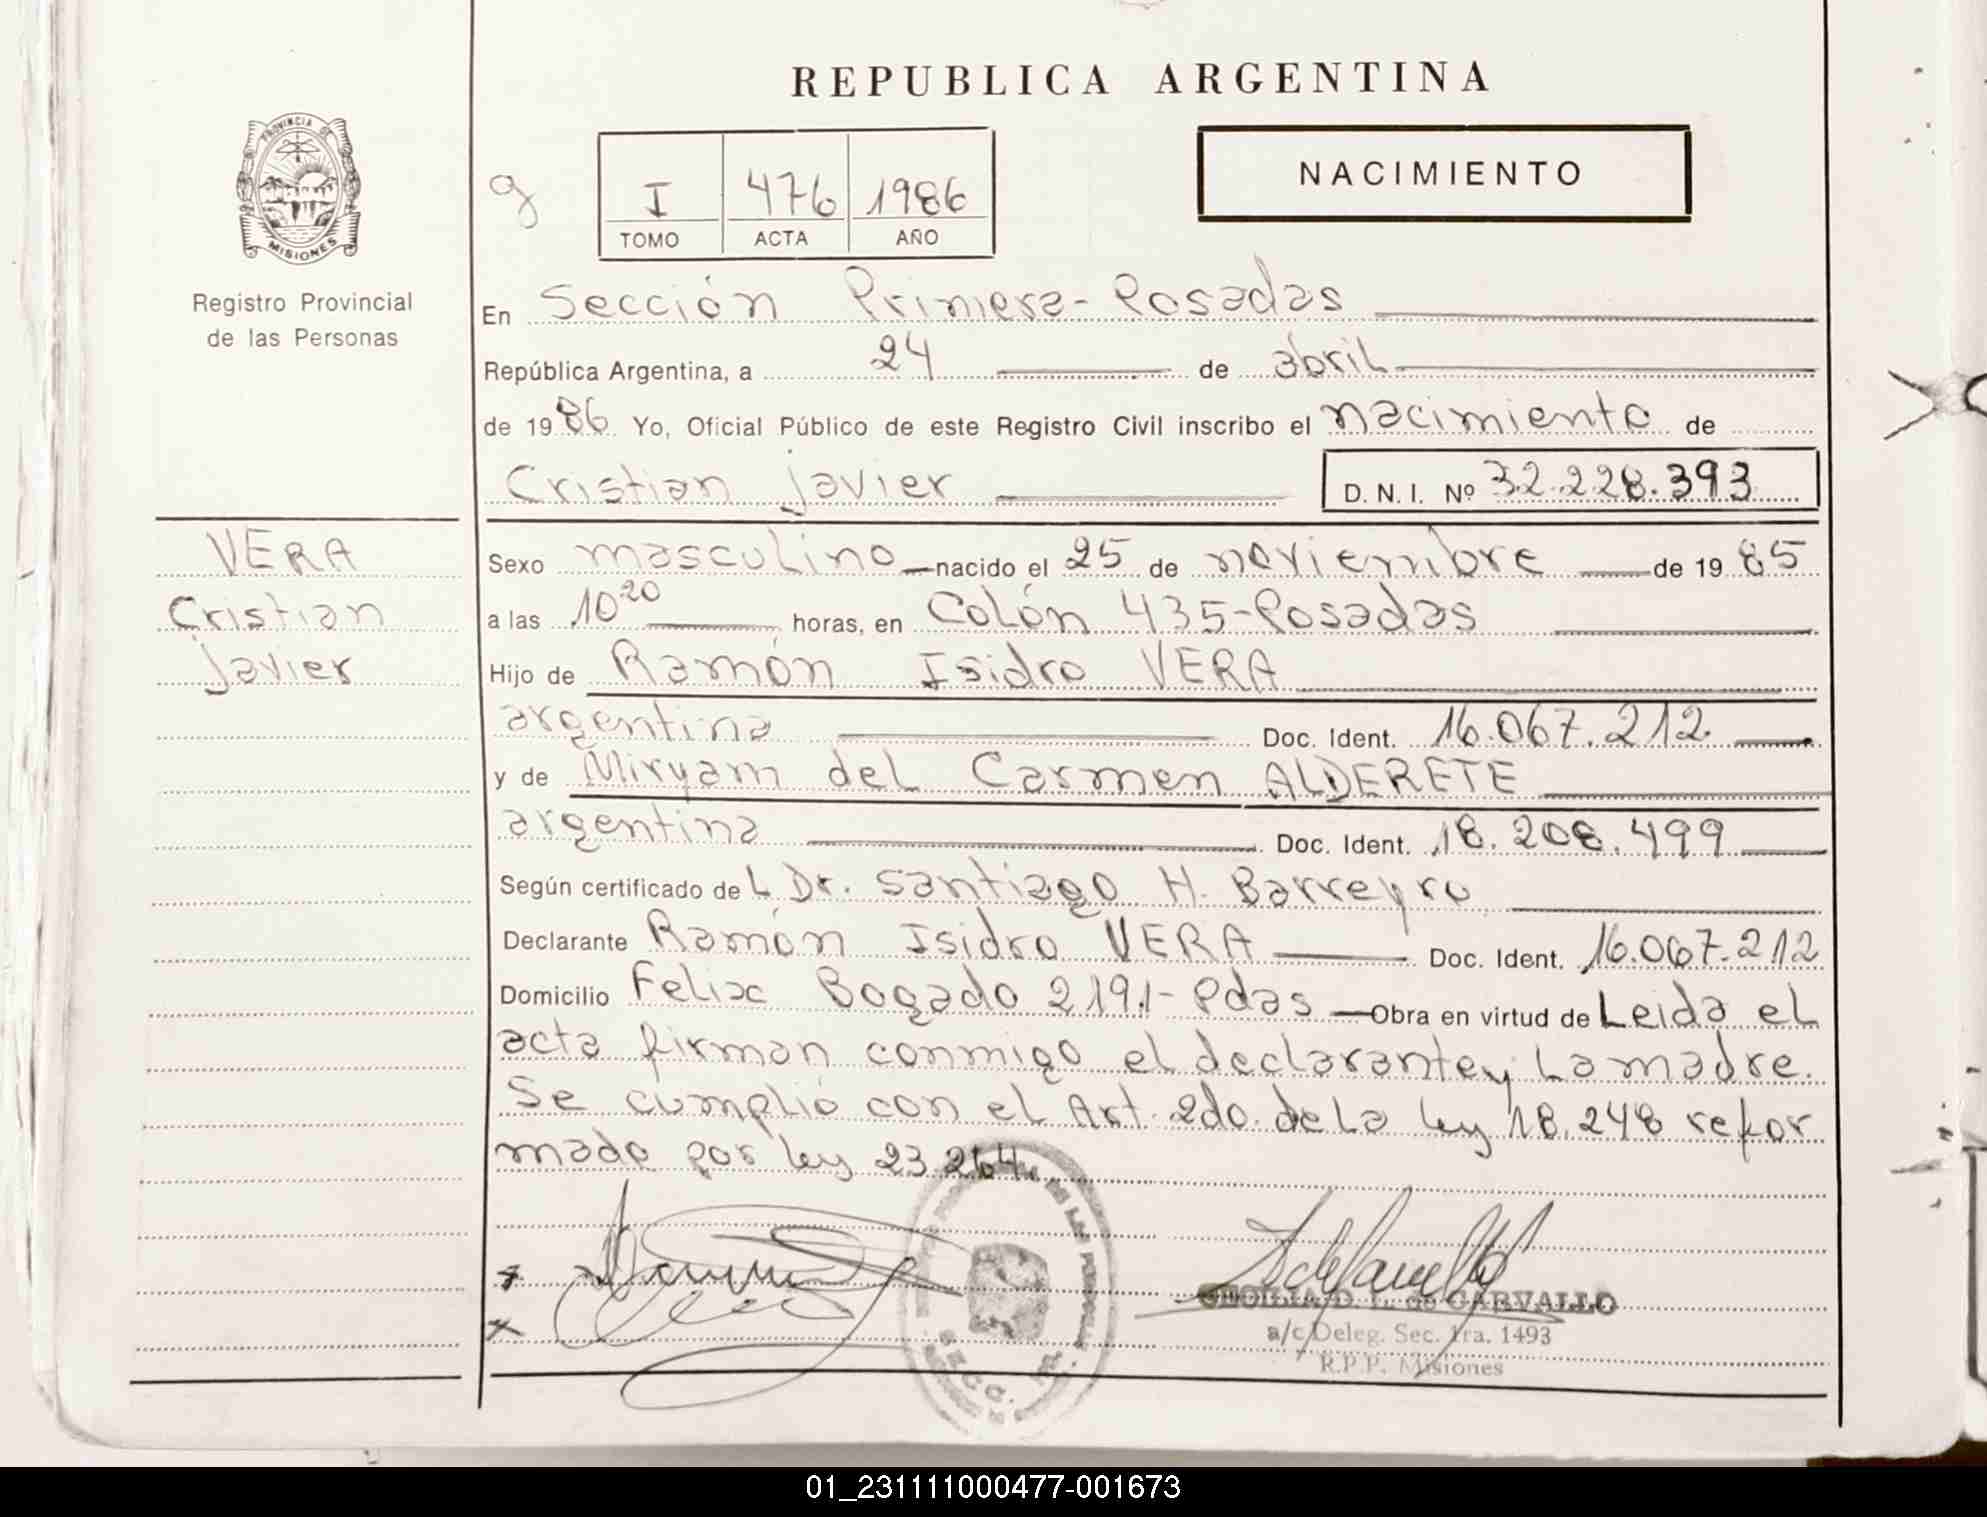 REPUBLICA ARGENTINA
PROVINCIA DE
MISIONES
Registro Provincial
de las Personas
g
I 476 1986
TOMO ACTA AÑO
NACIMIENTO
En Sección Primera - Posadas
República Argentina, a 24 de abril
de 1986 Yo, Oficial Público de este Registro Civil inscribo el nacimiento de
Cristian Javier D. N. I. Nº 32.228.393
VERA
Cristian
Javier
Sexo masculino nacido el 25 de noviembre de 1985
a las 10²⁰ horas, en Colón 435-Posadas
Hijo de Ramón Isidro VERA
argentina Doc. Ident. 16.067.212
y de Miryam del Carmen ALDERETE
argentina Doc. Ident. 18.208.499
Según certificado de L Dr. Santiago H. Barreyro
Declarante Ramón Isidro VERA Doc. Ident. 16.067.212
Domicilio Felix Bogado 2191- Pdas Obra en virtud de Leida el
acta firman conmigo el declarante y La madre.
Se cumplió con el Art. 2do. de la ley 18.248 refor
mado por ley 23.264.
CECILIA D. L. de CARVALLO
a/c Deleg. Sec. 1ra. 1493
R.P.P. Misiones
01_231111000477-001673